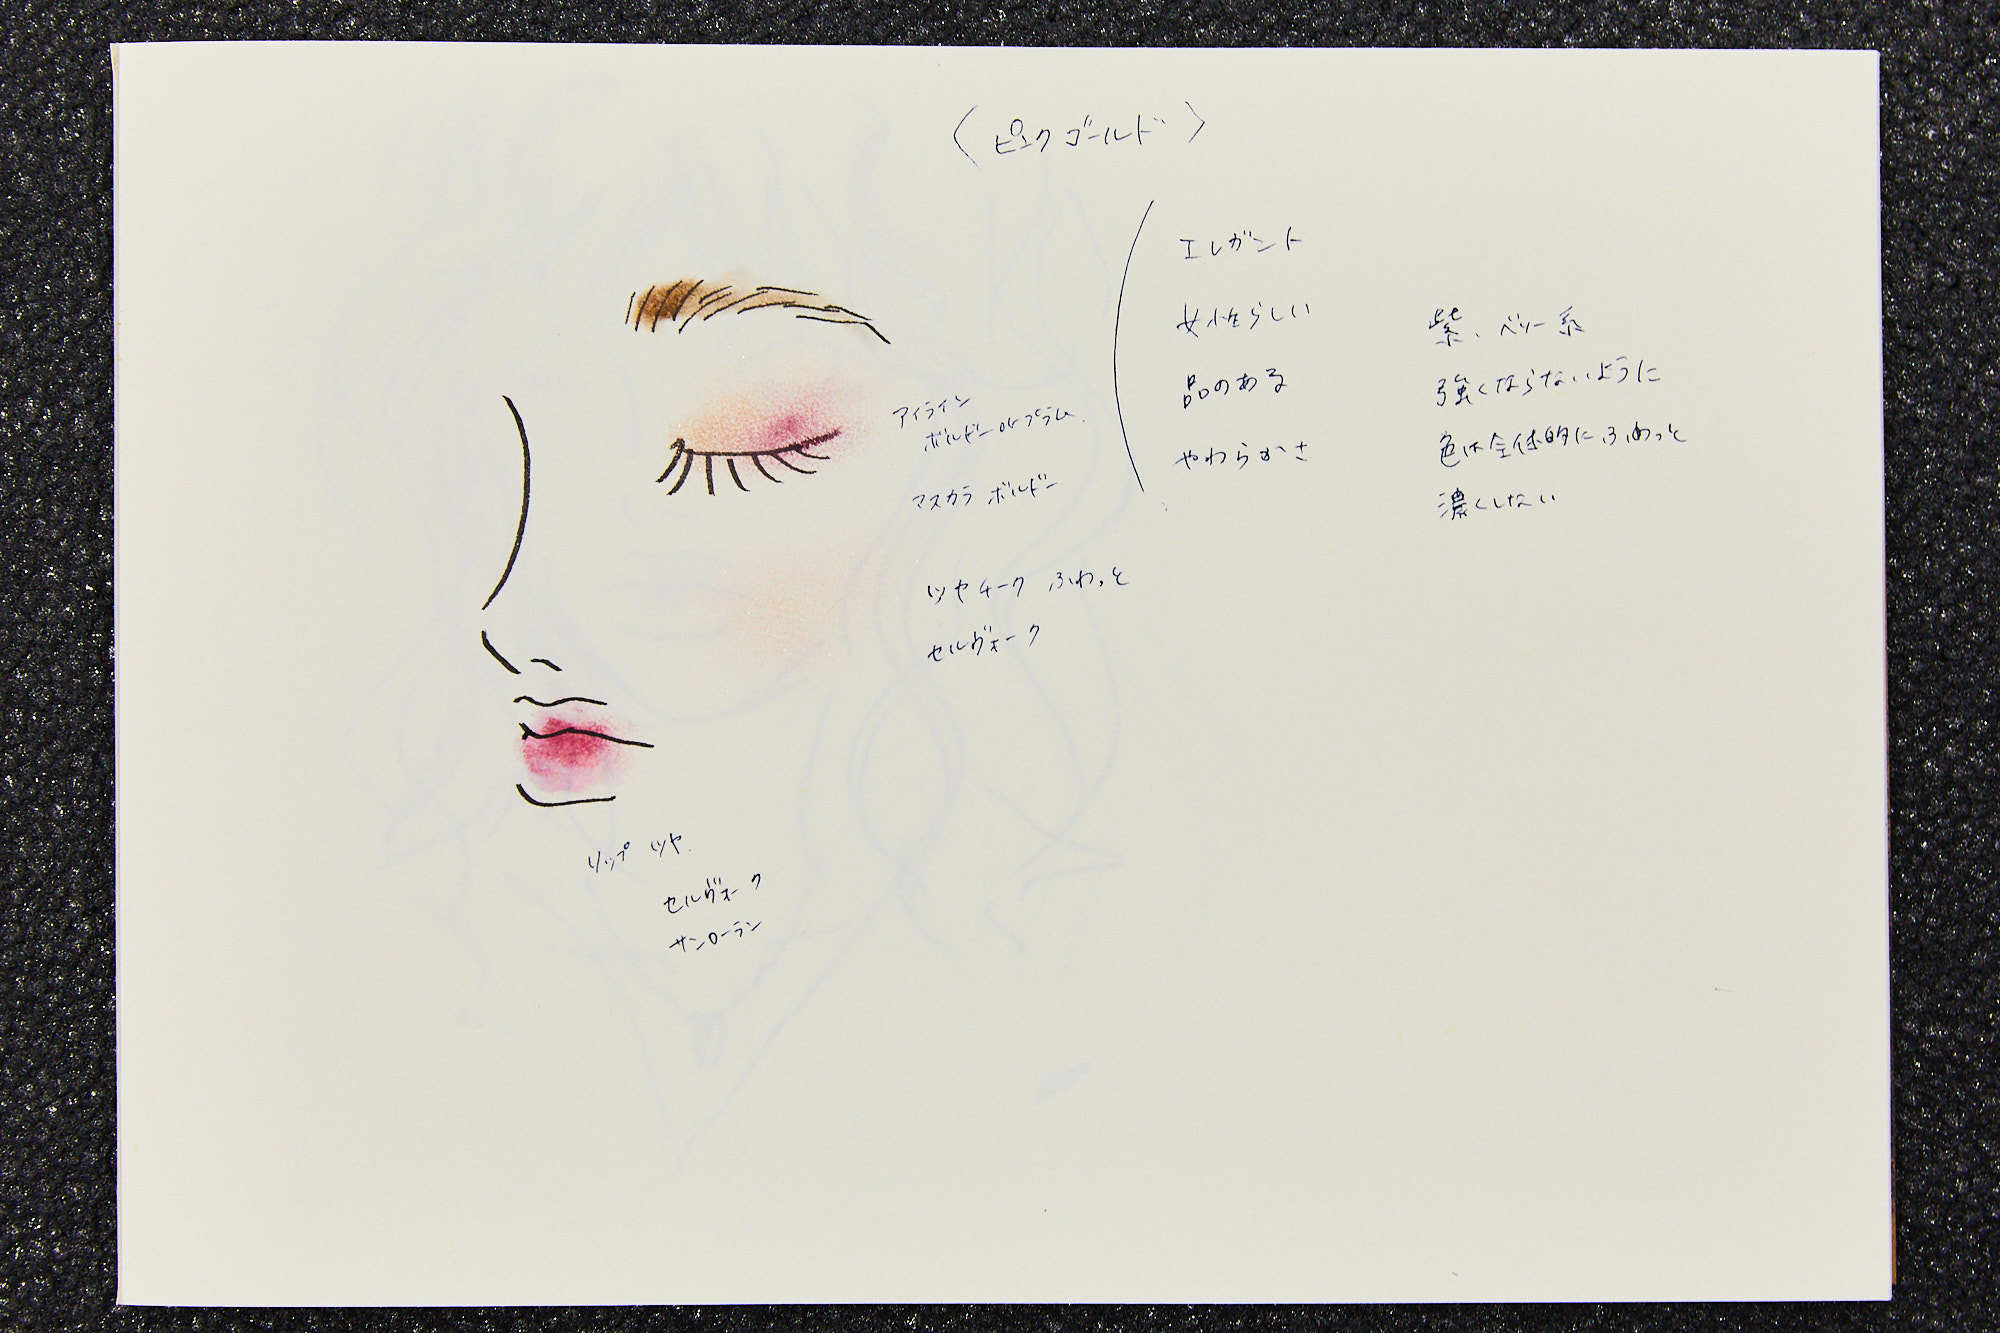 〈ピンクゴールド〉
エレガント
女性らしい
品のある
やわらかさ
紫、ベリー系
強くならないように
色は全体的にふわっと
濃くしない
アイライン
ボルドーorプラム.
マスカラ ボルドー
ツヤチーク ふわっと
セルヴォーク
リップ ツヤ.
セルヴォーク
サンローラン